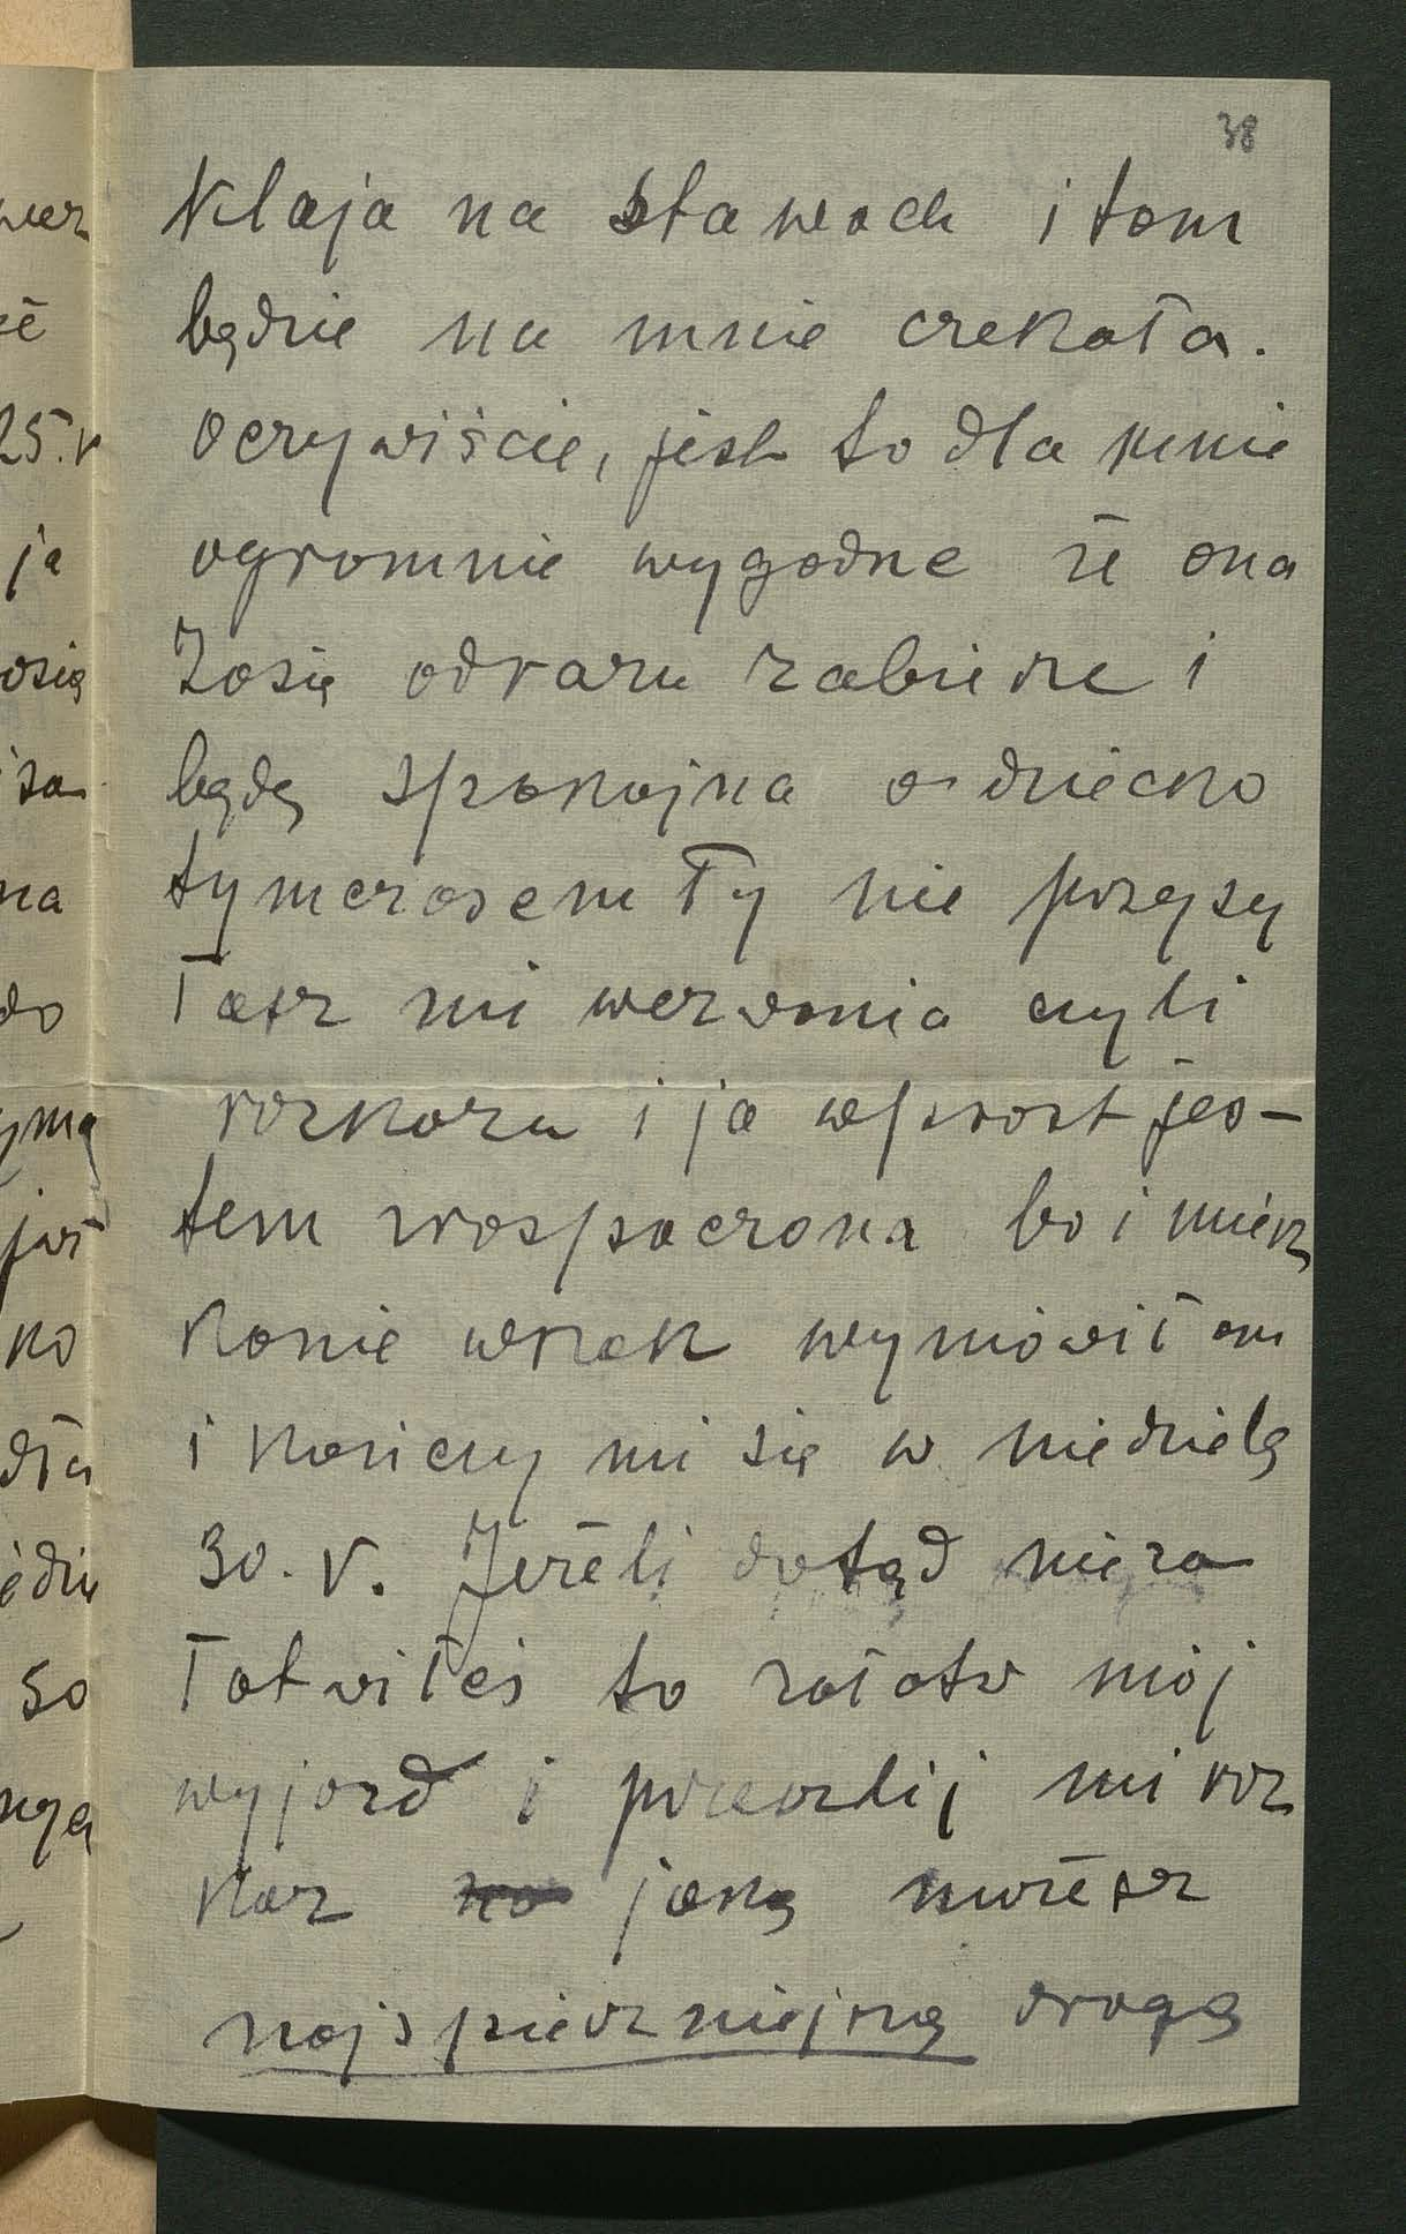 38
Klaja na Stawach i tam
będzie na mnie czekała.
Oczywiście, jest to dla mnie
ogromnie wygodne że ona
Zosię odrazu zabierze i
będę spokojna o dziecko
tymczasem Ty nie przysy
łasz mi wezwania czyli
rozkazu i ja wprost jes-
tem zrozpaczona bo i miesz
kanie wnek wymówiłam
i kończy mi się w niedzielę
30. V. Jeżeli dotąd nie za
łatwiłeś to załatw mój
wyjazd i prześlij mi roz
kaz jaką możesz
najspieszniejszą drogą
wez
że
25.V
ja
osię
sa
na
do
ymą
już
ko
dła
edzie
so